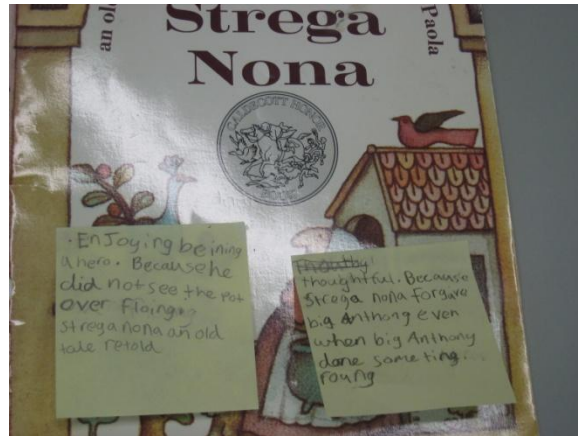 an old
Strega
Nona
Paola
CALDECOTT HONOR
BOOK
. Enjoying beining
a hero. Because he
did not see the pot
over floing.
Strega nona an old
tale retold
thoughtful. Because
Strega nona forgave
big Anthony even
when big Anthony
done some ting.
roung